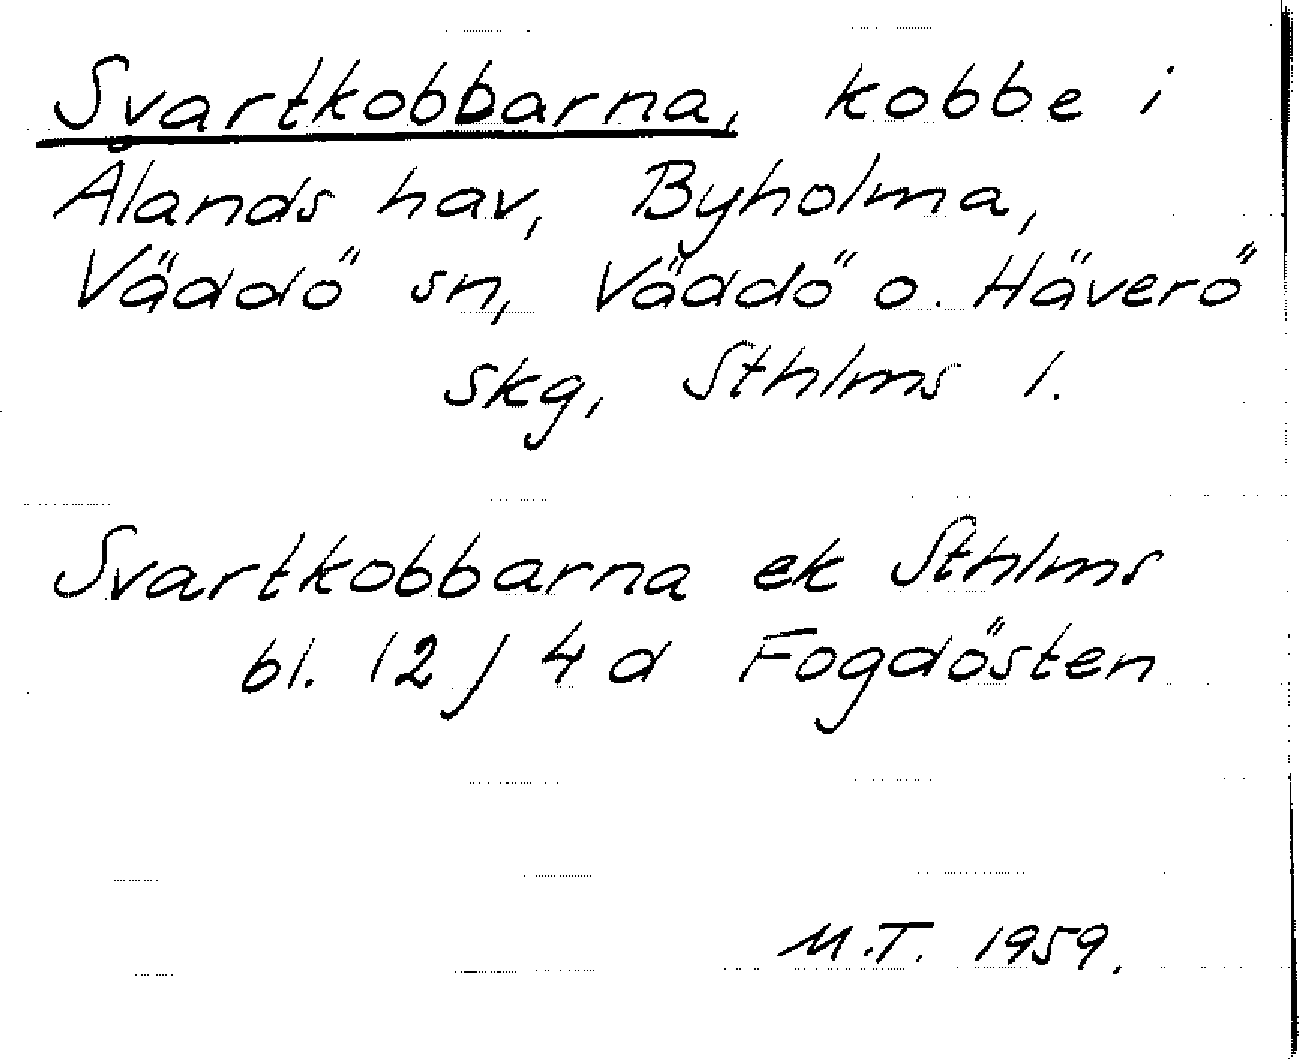 Svartkobbarna, kobbe i
Ålands hav, Byholma,
Väddö sn, Väddö o. Häverö
skg, Sthlms l.
Svartkobbarna ek Sthlms
bl. 12 J 4 d Fogdösten
M.T. 1959.